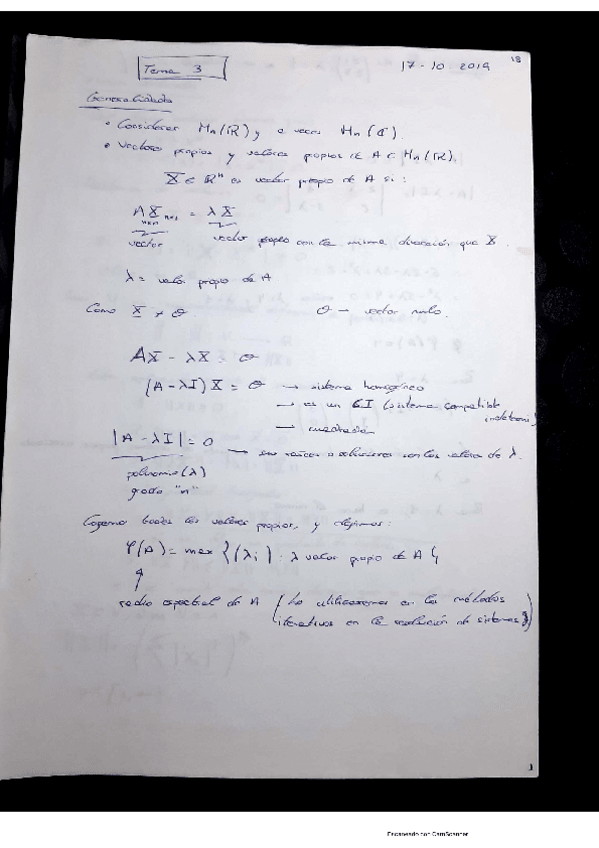 18
Tema 3
17-10-2019
Generalidades
• Considerar Mn(ℝ) y a veces Mn(ℂ).
• Vectores propios y valores propios de A ∈ Mn(ℝ).
X ∈ ℝⁿ es vector propio de A si:
A X = λ X
nxn nx1
vector vector propio con la misma dirección que X.
λ = valor propio de A
Como X ≠ θ θ → vector nulo.
AX - λX = θ
(A - λI) X = θ → sistema homogéneo
→ es un SI (sistema compatible indetermi)
→ cuadrado
|A - λI| = 0 → sus raíces o soluciones son los valores de λ.
polinomio (λ)
grado "n"
Cogemos todos los valores propios, y elegimos:
ρ(A) = max {(λi) : λ valor propio de A}
radio espectral de A (Lo utilizaremos en los métodos
iterativos en la resolución de sistemas)
1
Escaneado con CamScanner